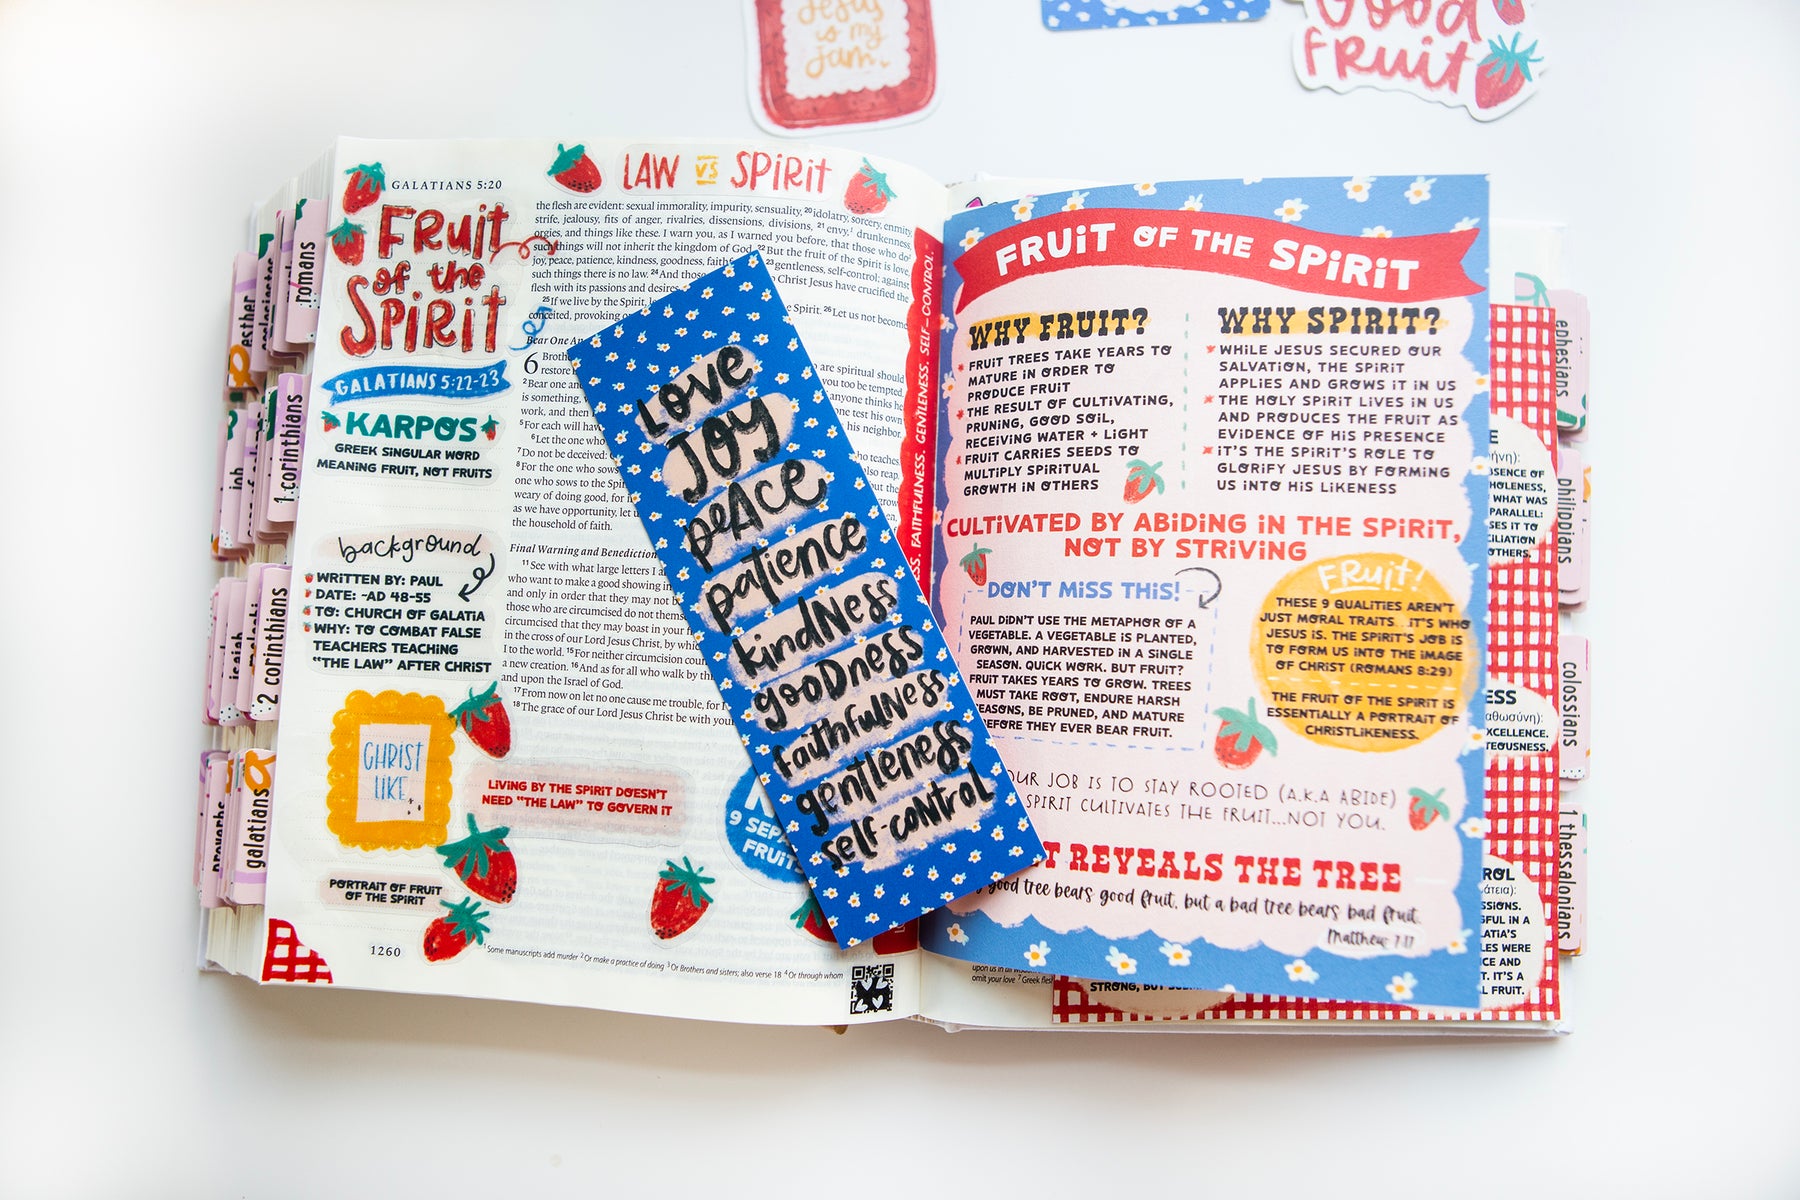 Jesus
is my
jam
Good
Fruit
GALATIANS 5:20
FRUIT
of the
SPIRIT
GALATIANS 5:22-23
KARPOS
GREEK SINGULAR WORD
MEANING FRUIT, NOT FRUITS
background
WRITTEN BY: PAUL
DATE: ~AD 48-55
TO: CHURCH OF GALATIA
WHY: TO COMBAT FALSE
TEACHERS TEACHING
"THE LAW" AFTER CHRIST
CHRIST
LIKE
PORTRAIT OF FRUIT
OF THE SPIRIT
1260
LAW VS SPIRIT
the flesh are evident: sexual immorality, impurity, sensuality, 20 idolatry, sorcery, enmity,
strife, jealousy, fits of anger, rivalries, dissensions, divisions, 21 envy,1 drunkenness,
orgies, and things like these. I warn you, as I warned you before, that those who do2
such things will not inherit the kingdom of God. 22 But the fruit of the Spirit is love,
joy, peace, patience, kindness, goodness, faith 23 gentleness, self-control; against
such things there is no law. 24 And those Christ Jesus have crucified the
flesh with its passions and desires.
25 If we live by the Spirit, le e Spirit. 26 Let us not become
conceited, provoking o
Bear One An
6 Brothe are spiritual should
restore you too be tempted.
2 Bear one an anyone thinks he
is something, one test his own
work, and then his neighbor.
5 For each will have
6 Let the one who ho teaches
7 Do not be deceived: G also reap.
8 For the one who sows but the
one who sows to the Spiri grow
weary of doing good, for i
as we have opportunity, let u
the household of faith.
Final Warning and Benediction
11 See with what large letters I a
who want to make a good showing in
and only in order that they may not b
those who are circumcised do not themse
circumcised that they may boast in your f
in the cross of our Lord Jesus Christ, by whic
I to the world. 15 For neither circumcision coun
a new creation. 16 And as for all who walk by th
and upon the Israel of God.
17 From now on let no one cause me trouble, for I
18 The grace of our Lord Jesus Christ be with your
LIVING BY THE SPIRIT DOESN'T
NEED "THE LAW" TO GOVERN IT
N
9 SEPA
FRUIT
1 Some manuscripts add murder 2 Or make a practice of doing 3 Or Brothers and sisters; also verse 18 4 Or through whom
ESS. FAITHFULNESS. GENTLENESS. SELF-CONTROL.
LOVE
JOY
peace
patience
kindness
gooDness
faithfulness
gentleness
self-control
FRUIT OF THE SPIRIT
WHY FRUIT?
FRUIT TREES TAKE YEARS TO
MATURE IN ORDER TO
PRODUCE FRUIT
THE RESULT OF CULTIVATING,
PRUNING, GOOD SOIL,
RECEIVING WATER + LIGHT
FRUIT CARRIES SEEDS TO
MULTIPLY SPIRITUAL
GROWTH IN OTHERS
WHY SPIRIT?
WHILE JESUS SECURED OUR
SALVATION, THE SPIRIT
APPLIES AND GROWS IT IN US
THE HOLY SPIRIT LIVES IN US
AND PRODUCES THE FRUIT AS
EVIDENCE OF HIS PRESENCE
IT'S THE SPIRIT'S ROLE TO
GLORIFY JESUS BY FORMING
US INTO HIS LIKENESS
CULTIVATED BY ABIDING IN THE SPIRIT,
NOT BY STRIVING
DON'T MISS THIS!
PAUL DIDN'T USE THE METAPHOR OF A
VEGETABLE. A VEGETABLE IS PLANTED,
GROWN, AND HARVESTED IN A SINGLE
SEASON. QUICK WORK. BUT FRUIT?
FRUIT TAKES YEARS TO GROW. TREES
MUST TAKE ROOT, ENDURE HARSH
EASONS, BE PRUNED, AND MATURE
BEFORE THEY EVER BEAR FRUIT.
FRUIT!
THESE 9 QUALITIES AREN'T
JUST MORAL TRAITS...IT'S WHO
JESUS IS. THE SPIRIT'S JOB IS
TO FORM US INTO THE IMAGE
OF CHRIST (ROMANS 8:29)
THE FRUIT OF THE SPIRIT IS
ESSENTIALLY A PORTRAIT OF
CHRISTLIKENESS.
OUR JOB IS TO STAY ROOTED (A.K.A ABIDE)
SPIRIT CULTIVATES THE FRUIT...NOT YOU.
T REVEALS THE TREE
y good tree bears good fruit, but a bad tree bears bad fruit.
Matthew 7:17
upon us in all
omit your love 7 Greek flesh
STRONG, BUT
E
ήνη):
BSENCE OF
HOLENESS,
WHAT WAS
PARALLEL:
SES IT TO
CILIATION
OTHERS.
ESS
αθωσύνη):
XCELLENCE.
TEOUSNESS.
ROL
άτεια):
SSIONS.
GFUL IN A
LATIA'S
LES WERE
ICE AND
T. IT'S A
L FRUIT.
esther
ecclesiastes
romans
job
1 corinthians
isaiah
malachi
2 corinthians
proverbs
galatians
ephesians
philippians
colossians
1 thessalonians